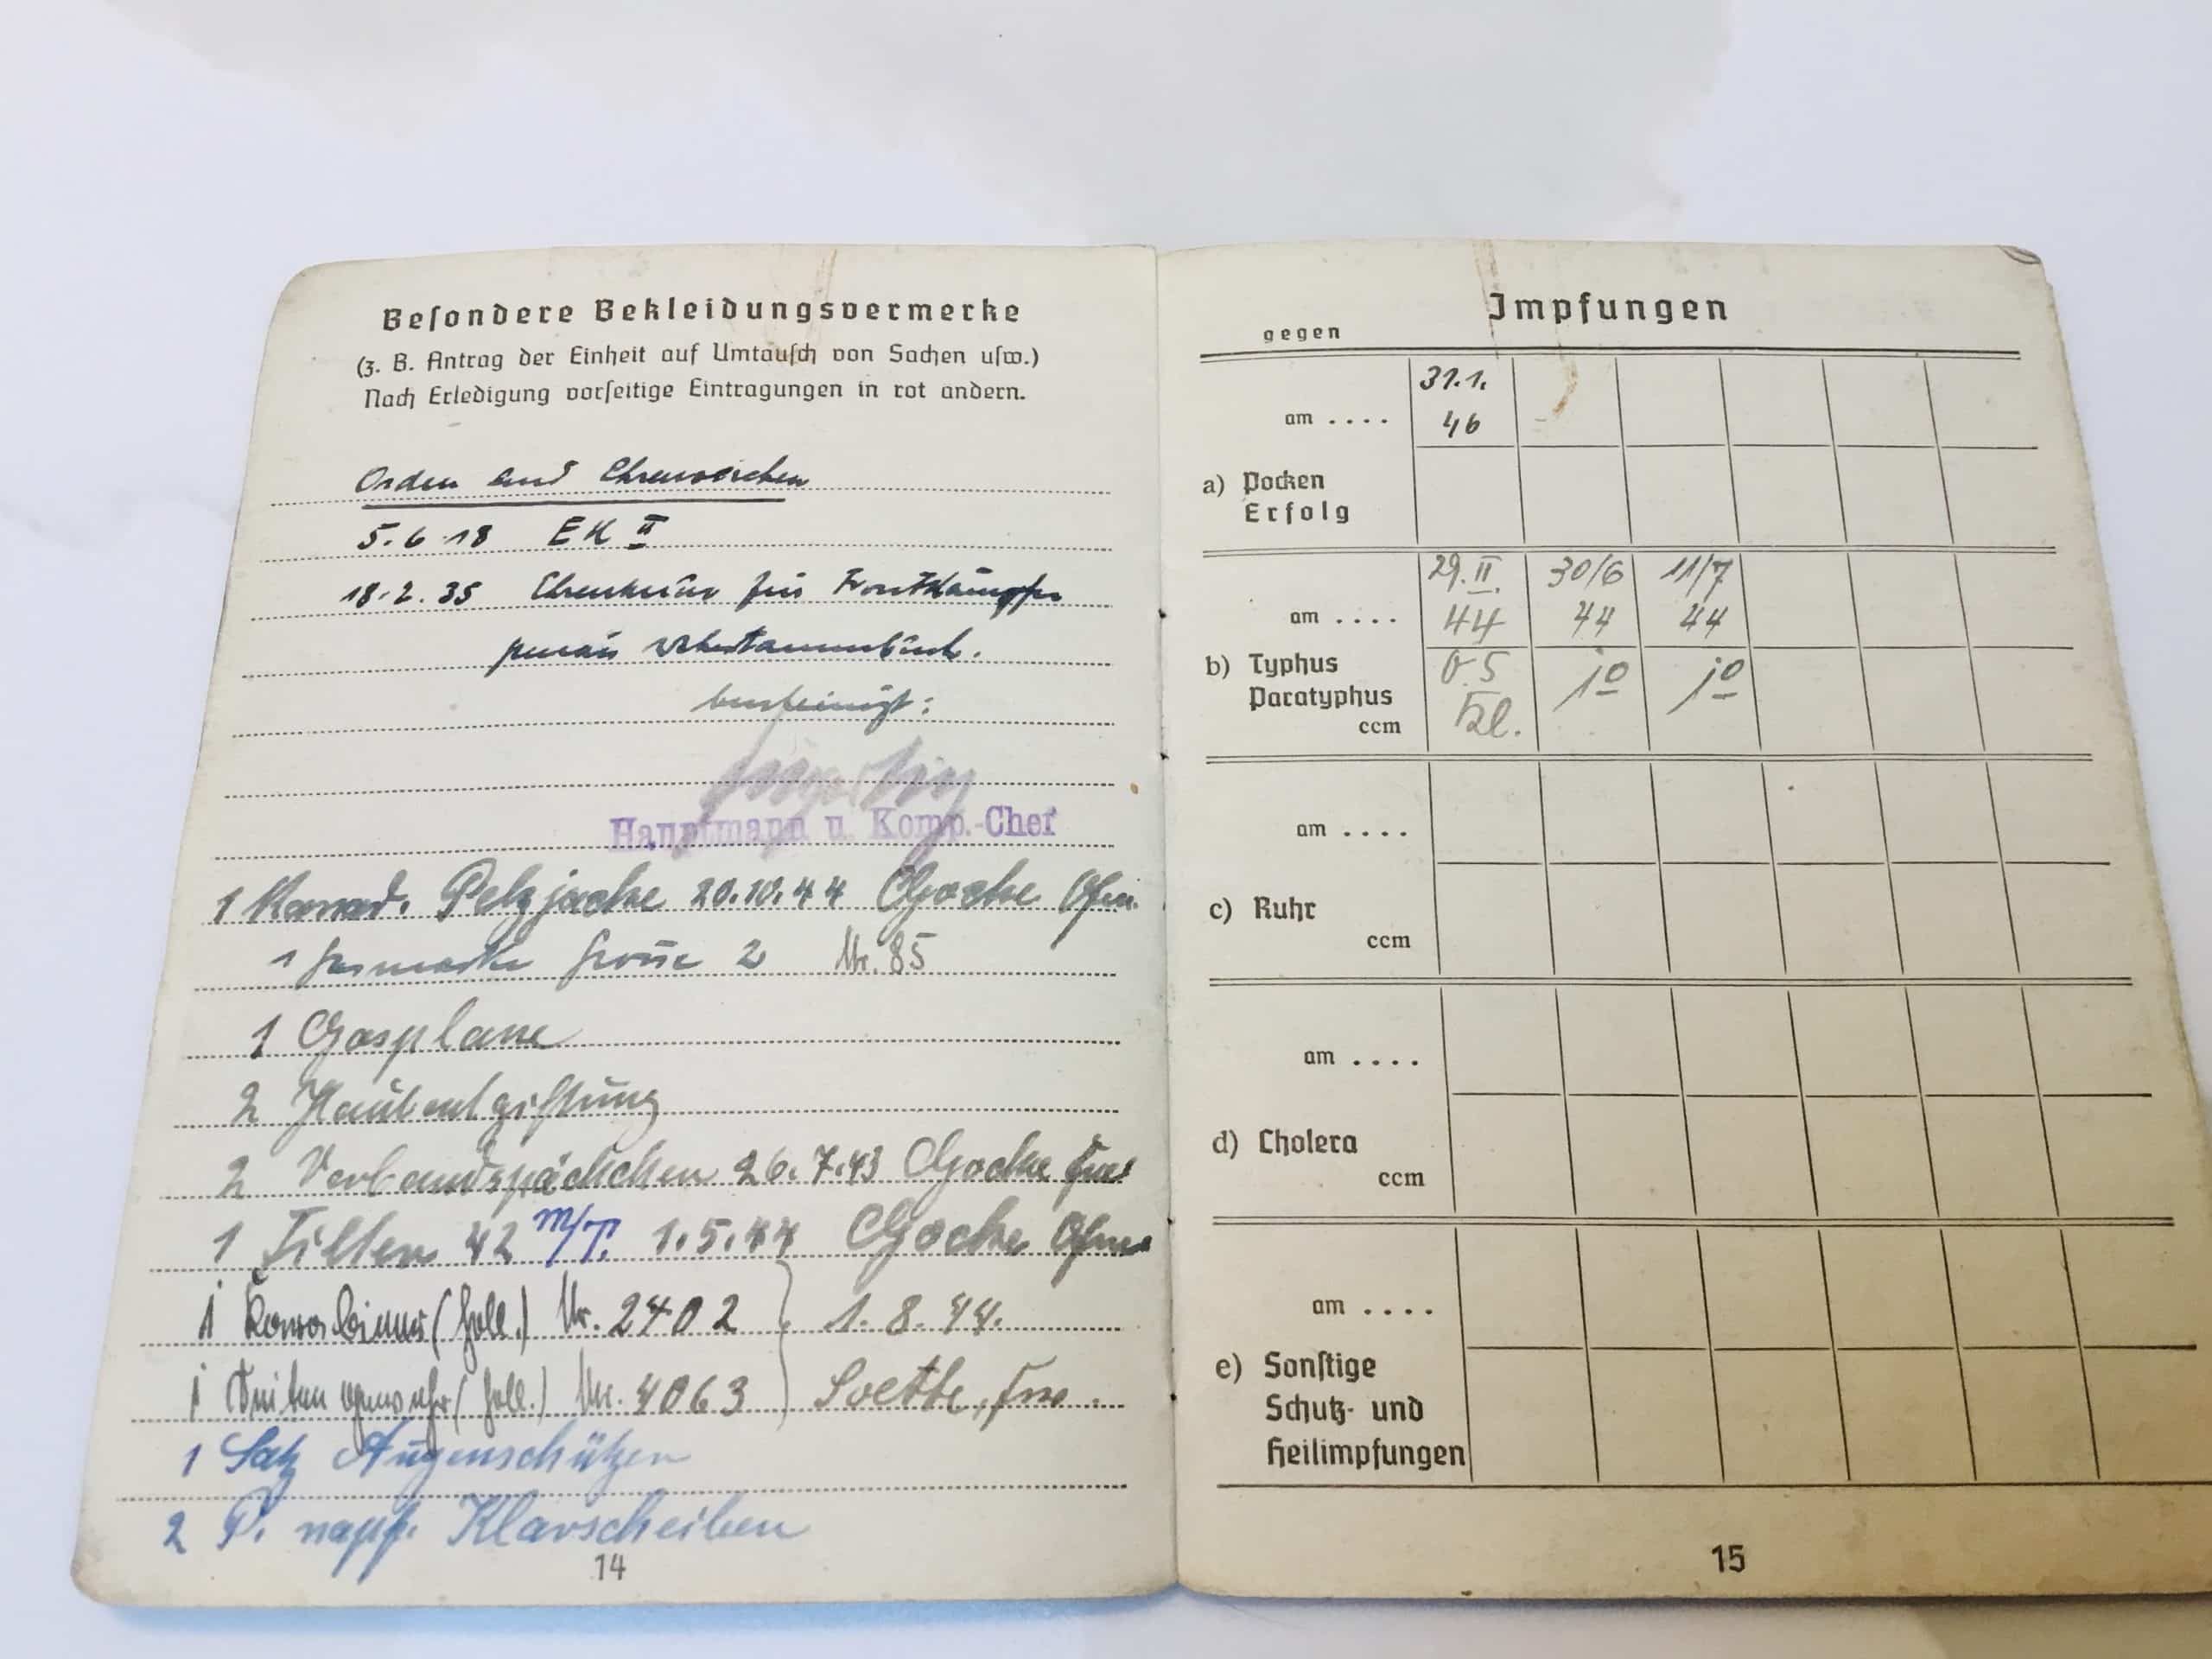 Besondere Bekleidungsvermerke
(z. B. Antrag der Einheit auf Umtausch von Sachen usw.)
Nach Erledigung vorseitige Eintragungen in rot andern.
Orden und Ehrenzeichen
5. 6. 18 EK II
18. 2. 35 Ehrenkreuz für Frontkämpfer
gemäß Wehrstammbuch.
bescheinigt:
Hauptmann u. Komp.-Chef
1 Kanad. Pelzjacke 20.10.44 Gocke
1 Gasmaske Größe 2 Nr. 85
1 Gasplane
2 Hautentgiftung
2 Verbandspäckchen 26. 7. 43 Gocke
1 Filter 42 m/T. 1. 5. 44 Gocke
1 (holl.) Nr. 2402 1. 8. 44.
1 Seitengewehr (holl.) Nr. 4063
1 Satz Augenschützer
2 P. Klarscheiben
14
Impfungen
gegen
am .... 31.1. 46
a) Pocken
Erfolg
am .... 29. II. 44 30/6 44 11/7 44
b) Typhus
Paratyphus
ccm
0.5
am ....
c) Ruhr
ccm
am ....
d) Cholera
ccm
am ....
e) Sonstige
Schutz- und
Heilimpfungen
15